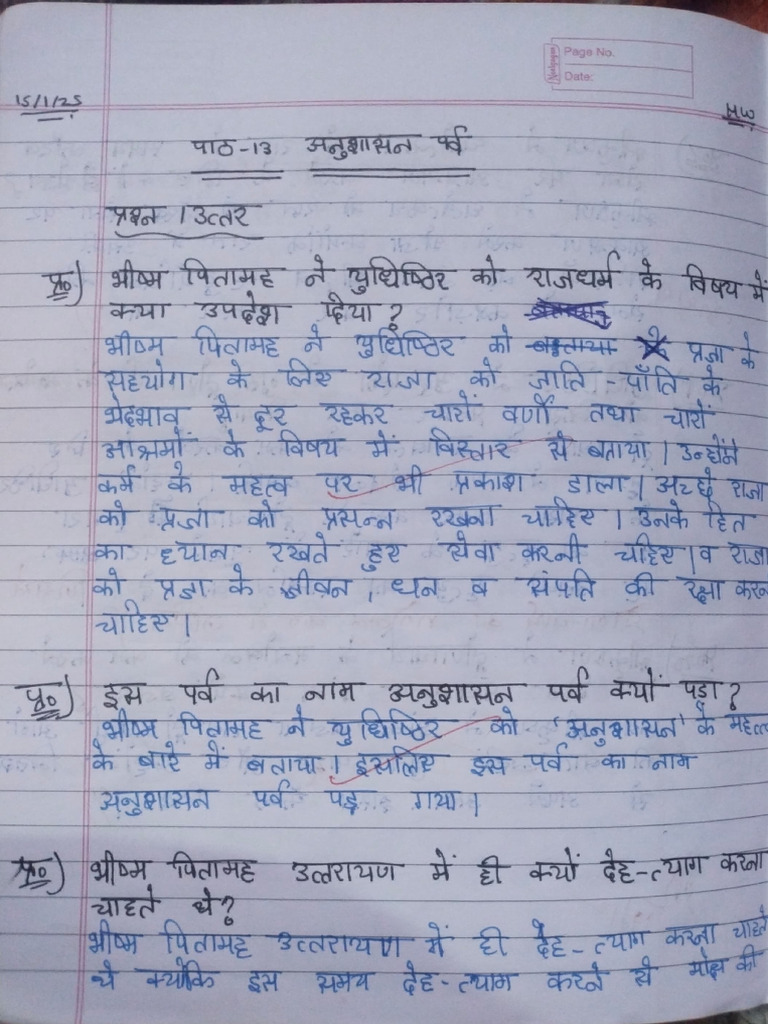 Page No.
Date:
15/1/25
HW
पाठ-13 अनुशासन पर्व
प्रश्न / उत्तर
प्र०) भीष्म पितामह ने युधिष्ठिर को राजधर्म के विषय में
क्या उपदेश दिया ?
भीष्म पितामह ने युधिष्ठिर को बताया प्रजा के
सहयोग के लिए राजा को जाति-पाँति के
भेदभाव से दूर रहकर चारों वर्णों तथा चारों
आश्रमों के विषय में विस्तार से बताया । उन्होंने
कर्म के महत्व पर भी प्रकाश डाला । अच्छे राजा
को प्रजा को प्रसन्न रखना चाहिए । उनके हित
का ध्यान रखते हुए सेवा करनी चहिए । व राजा
को प्रजा के जीवन , धन व संपति की रक्षा करन
चाहिए ।
प्र०) इस पर्व का नाम अनुशासन पर्व क्यों पड़ा ?
भीष्म पितामह ने युधिष्ठिर को 'अनुशासन' के महत्व
के बारे में बताया । इसलिए इस पर्व का नाम
अनुशासन पर्व पड़ गया ।
प्र०) भीष्म पितामह उत्तरायण में ही क्यों देह-त्याग करना
चाहते थे ?
भीष्म पितामह उत्तरायण में ही देह-त्याग करना चाहते
थे क्योंकि इस समय देह-त्याग करने से मोक्ष की